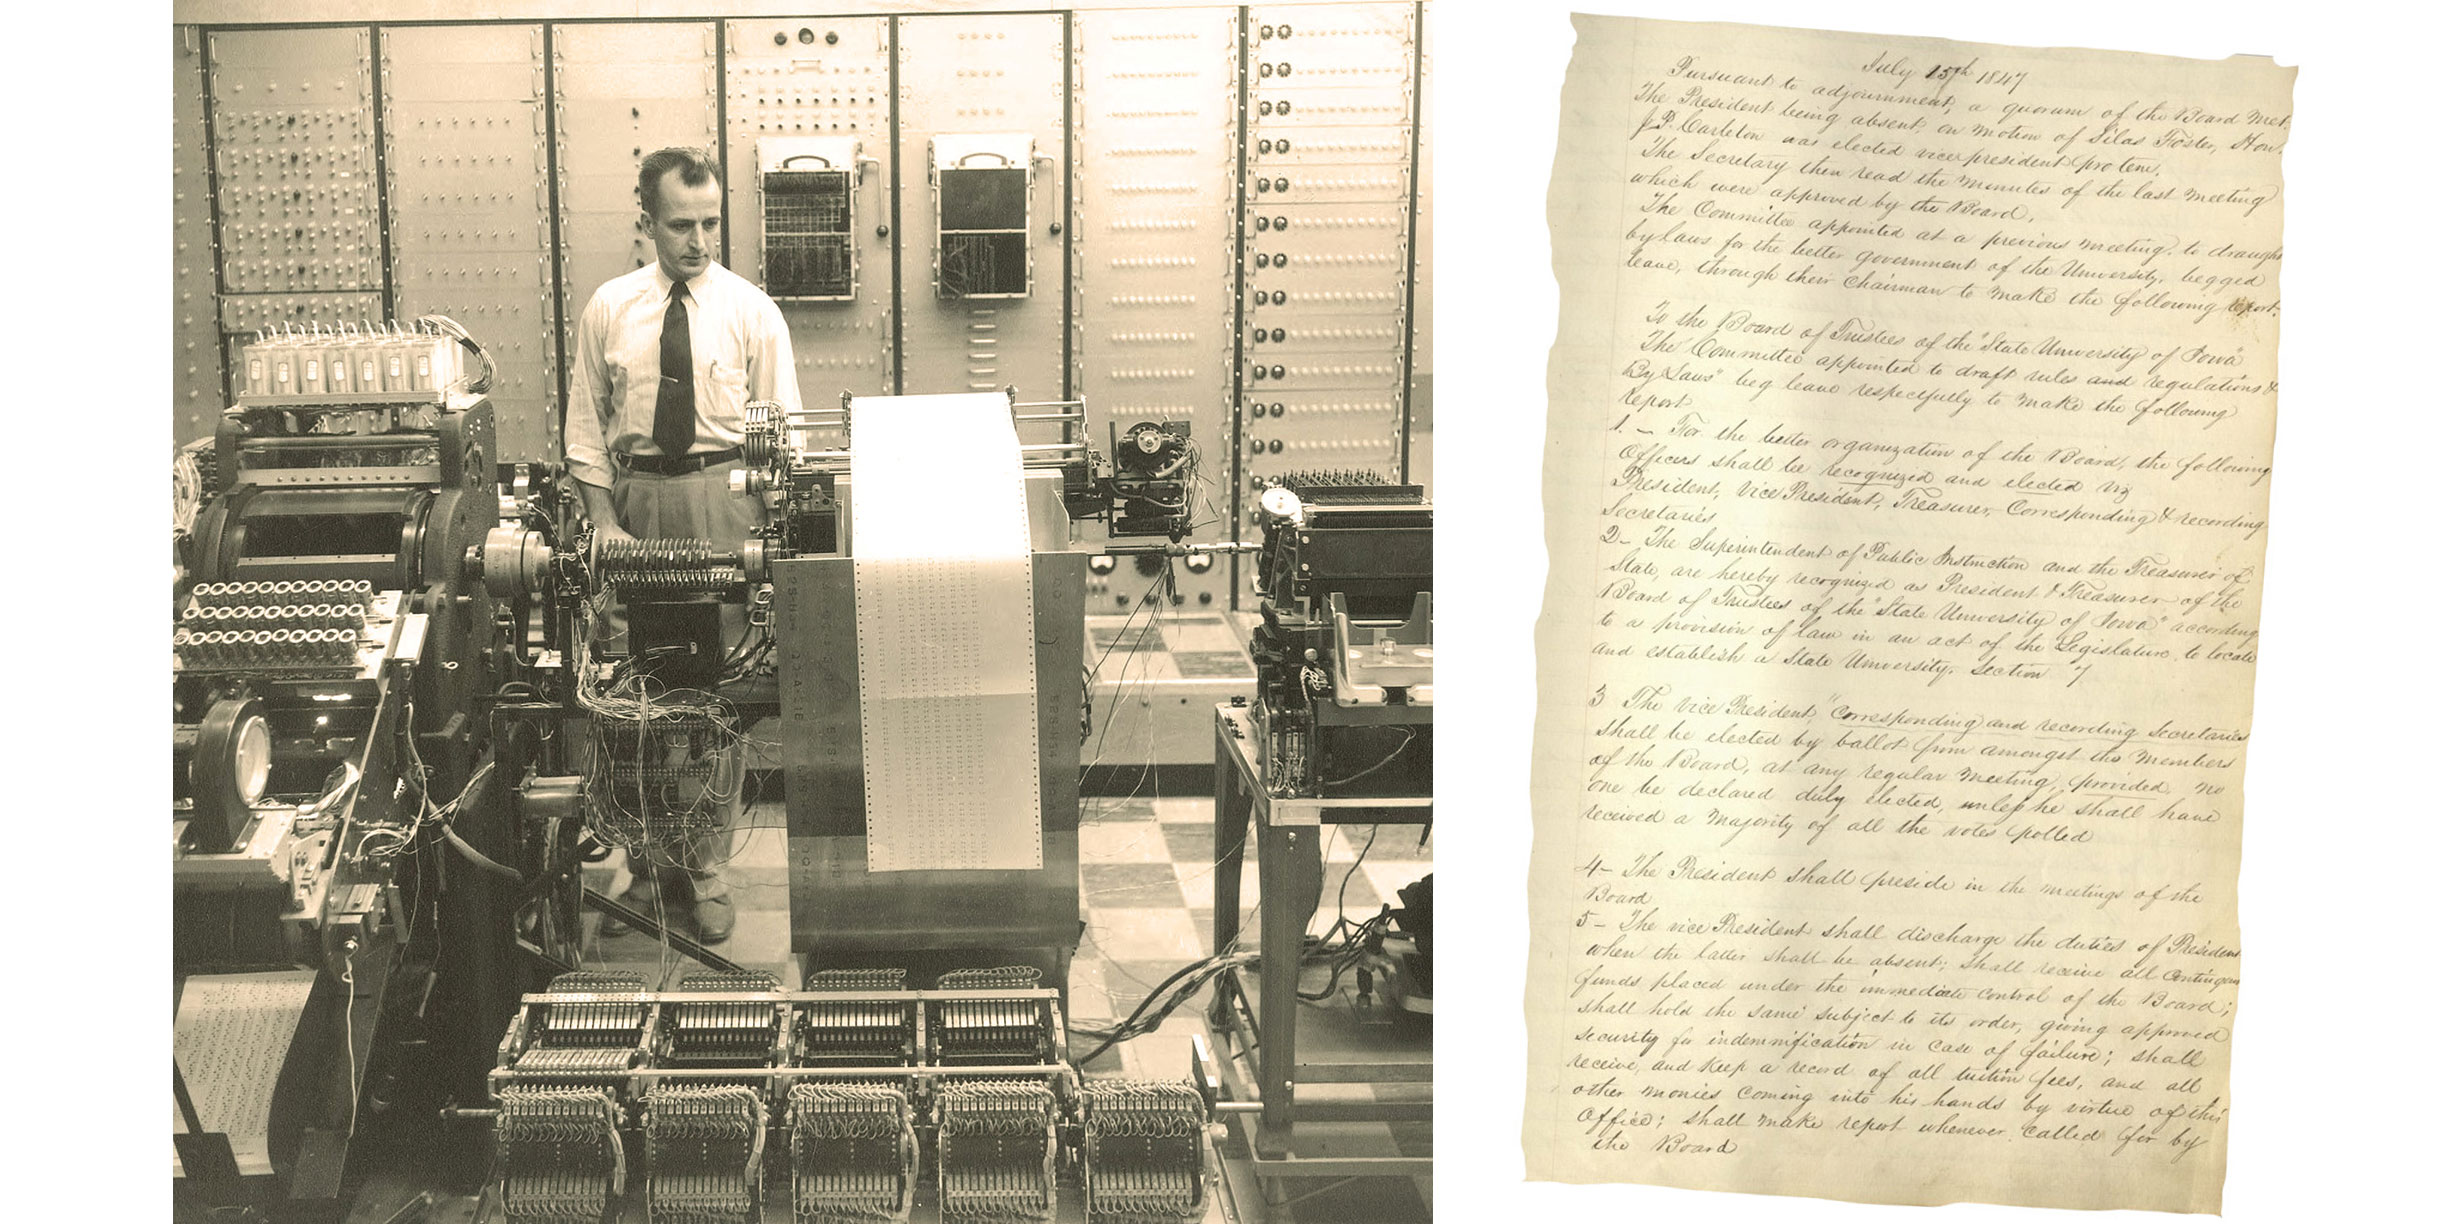 July 15th 1847
Pursuant to adjournment, a quorum of the Board met.
The President being absent, on motion of Silas Foster, Hon.
J.P. Carleton was elected vice president protem.
The Secretary then read the minutes of the last meeting
which were approved by the Board.
The Committee appointed at a previous meeting, to draught
by laws for the better government of the University, begged
leave, through their Chairman to make the following report.
To the Board of Trustees of the "State University of Iowa"
The Committee appointed to draft rules and regulations &
By Laws" beg leave respectfully to make the following
report
1. — For the better organization of the Board, the following
Officers shall be recognized and elected viz
President, Vice President, Treasurer, Corresponding & recording
Secretaries
2— The Superintendent of Public Instruction and the Treasurer of
State, are hereby recognized as President & Treasurer of the
Board of Trustees of the "State University of Iowa" according
to a provision of law in an act of the Legislature to locate
and establish a State University. Section 7
3 The vice President, "Corresponding and recording Secretaries
shall be elected by ballot from amongst the members
of the Board, at any regular meeting, provided, no
one be declared duly elected, unless he shall have
received a majority of all the votes polled
4— The President shall preside in the meetings of the
Board
5— The vice President shall discharge the duties of President
when the latter shall be absent; shall receive all Contingent
funds placed under the immediate control of the Board;
shall hold the same subject to its order, giving approved
security for indemnification in case of failure; shall
receive, and keep a record of all tuition fees, and all
other monies coming into his hands by virtue of this
Office; shall make report whenever called for by
the Board